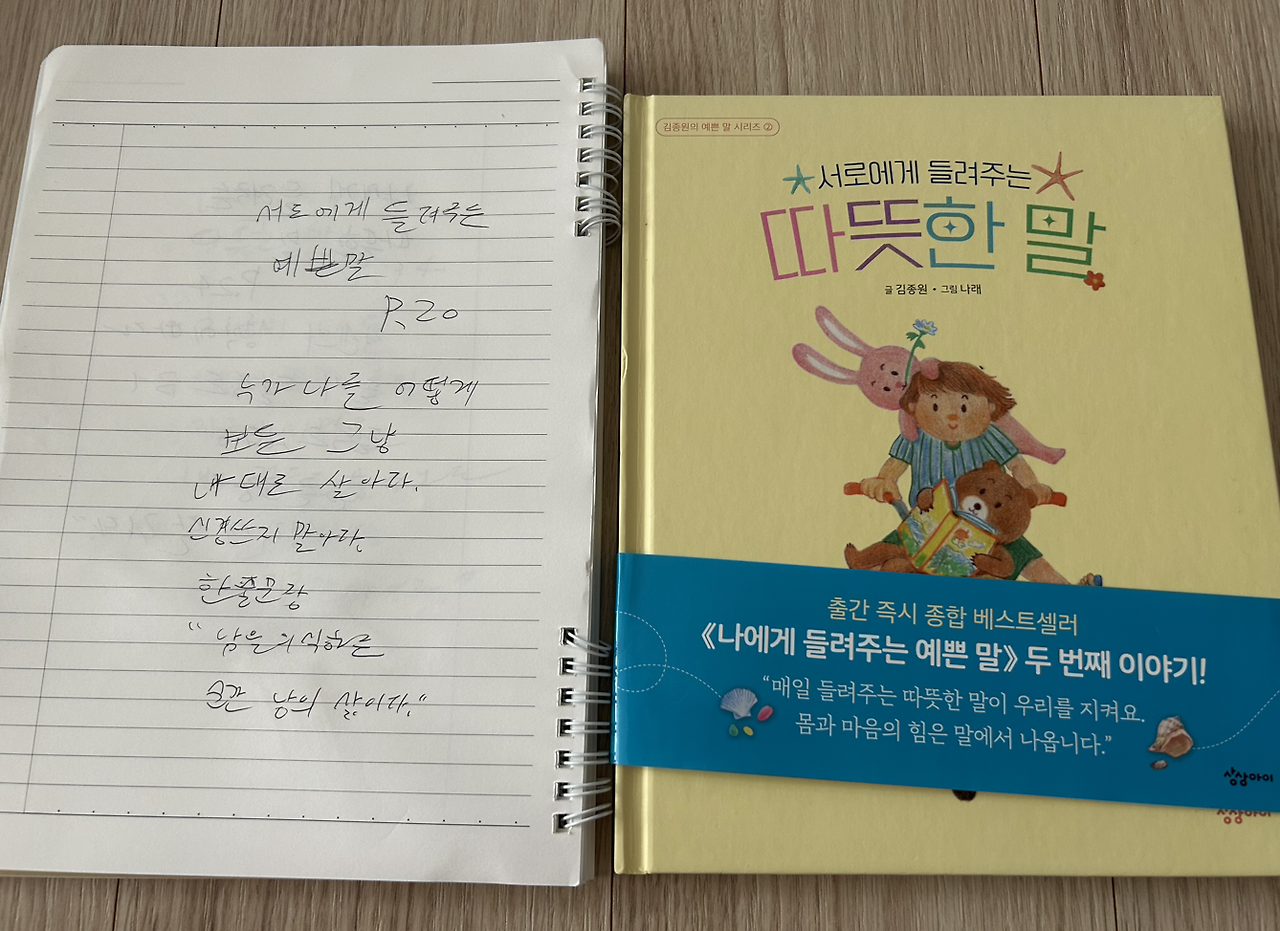 서로에게 들려주는
예쁜말
P.20
누가 나를 어떻게
보든 그냥
내 대로 살아라.
신경쓰지 말아라.
한줄문장
"남을 의식하는
순간 남의 삶이다."
김종원의 예쁜 말 시리즈 ②
서로에게 들려주는
따뜻한 말
글 김종원 • 그림 나래
출간 즉시 종합 베스트셀러
《나에게 들려주는 예쁜 말》 두 번째 이야기!
“매일 들려주는 따뜻한 말이 우리를 지켜요.
몸과 마음의 힘은 말에서 나옵니다.”
상상아이
상상아이